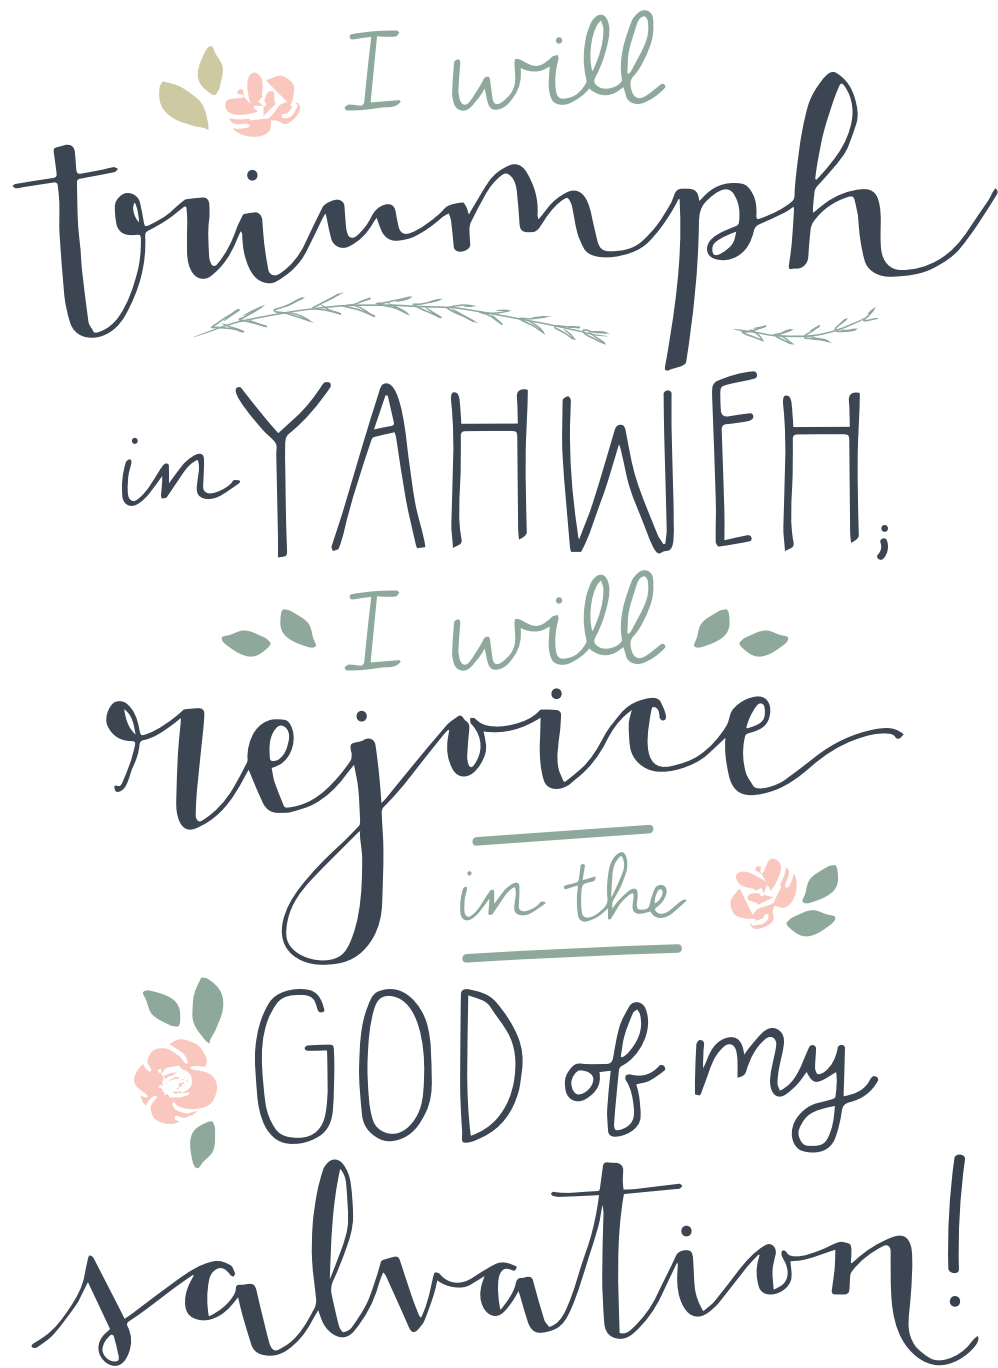 I will
triumph
in YAHWEH;
I will
rejoice
in the
GOD of my
salvation!